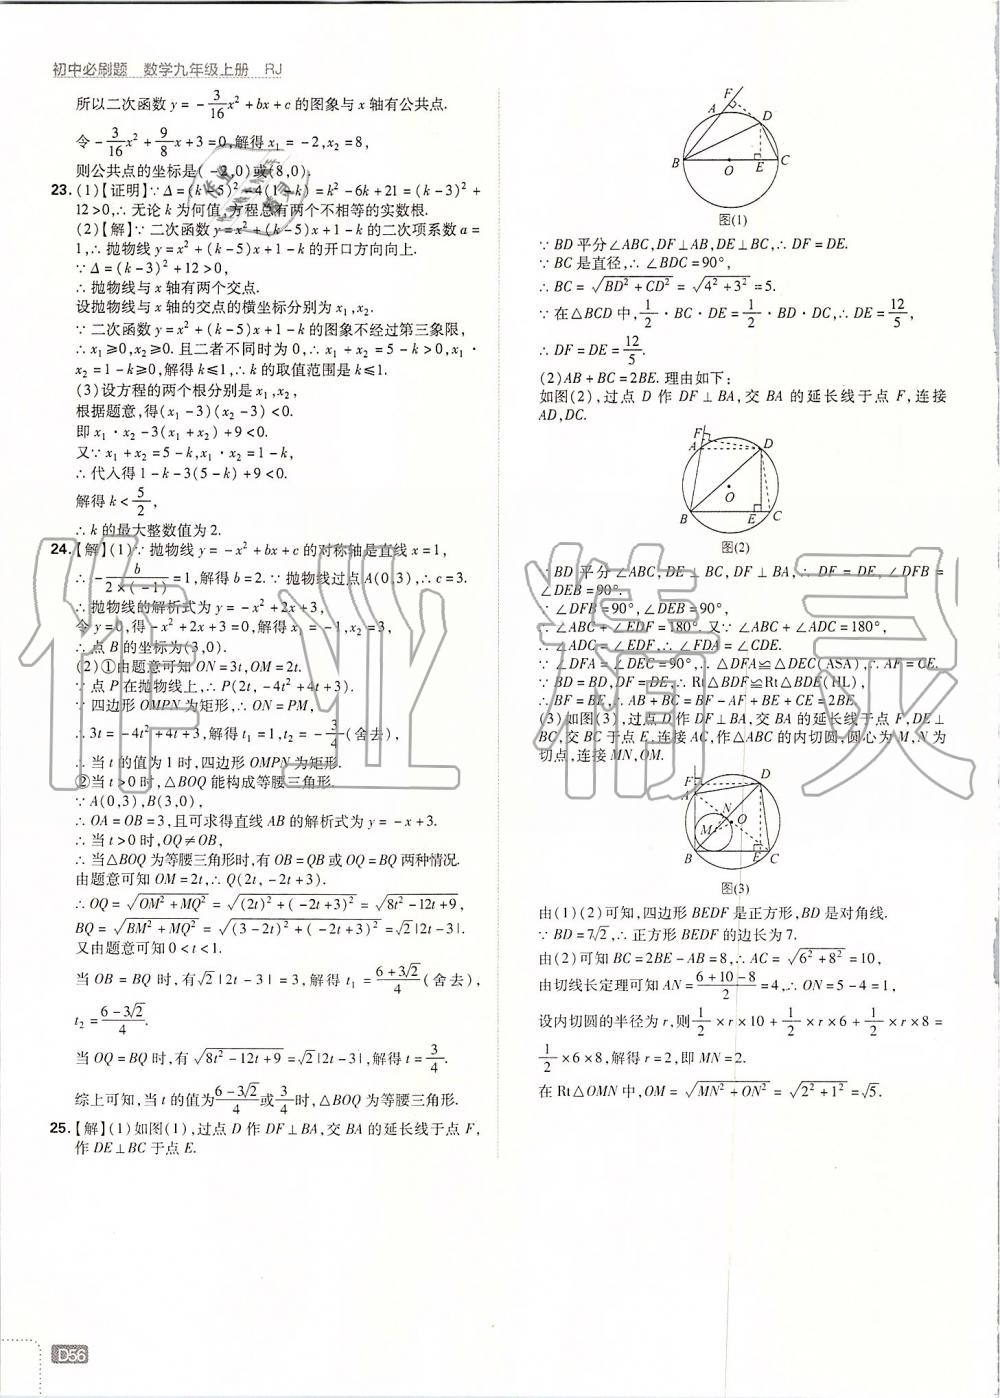 初中必刷题 数学九年级上册 RJ
所以二次函数 y = -3/16x² + bx + c 的图象与 x 轴有公共点.
令 -3/16x² + 9/8x + 3 = 0,解得 x₁ = -2,x₂ = 8,
则公共点的坐标是(-2,0)或(8,0).
23. (1)【证明】∵ Δ = (k-5)² - 4(1-k) = k² - 6k + 21 = (k-3)² +
12 > 0,∴ 无论 k 为何值,方程总有两个不相等的实数根.
(2)【解】∵ 二次函数 y = x² + (k-5)x + 1 - k 的二次项系数 a =
1,∴ 抛物线 y = x² + (k-5)x + 1 - k 的开口方向向上.
∵ Δ = (k-3)² + 12 > 0,
∴ 抛物线与 x 轴有两个交点.
设抛物线与 x 轴的交点的横坐标分别为 x₁,x₂.
∵ 二次函数 y = x² + (k-5)x + 1 - k 的图象不经过第三象限,
∴ x₁ ≥ 0,x₂ ≥ 0. 且二者不同时为 0,∴ x₁ + x₂ = 5 - k > 0,x₁ ·
x₂ = 1 - k ≥ 0,解得 k ≤ 1,∴ k 的取值范围是 k ≤ 1.
(3)设方程的两个根分别是 x₁,x₂,
根据题意,得(x₁ - 3)(x₂ - 3) < 0.
即 x₁ · x₂ - 3(x₁ + x₂) + 9 < 0.
又∵ x₁ + x₂ = 5 - k,x₁ · x₂ = 1 - k,
∴ 代入得 1 - k - 3(5 - k) + 9 < 0.
解得 k < 5/2,
∴ k 的最大整数值为 2.
24.【解】(1)∵ 抛物线 y = -x² + bx + c 的对称轴是直线 x = 1,
∴ -b/(2×(-1)) = 1,解得 b = 2. ∵ 抛物线过点 A(0,3),∴ c = 3.
∴ 抛物线的解析式为 y = -x² + 2x + 3,
令 y = 0,得 -x² + 2x + 3 = 0,解得 x₁ = -1,x₂ = 3,
∴ 点 B 的坐标为(3,0).
(2)①由题意可知 ON = 3t,OM = 2t.
∵ 点 P 在抛物线上,∴ P(2t,-4t² + 4t + 3).
∵ 四边形 OMPN 为矩形,∴ ON = PM,
∴ 3t = -4t² + 4t + 3,解得 t₁ = 1,t₂ = -3/4(舍去),
∴ 当 t 的值为 1 时,四边形 OMPN 为矩形.
②当 t > 0 时,△BOQ 能构成等腰三角形.
∵ A(0,3),B(3,0),
∴ OA = OB = 3,且可求得直线 AB 的解析式为 y = -x + 3.
∴ 当 t > 0 时,OQ ≠ OB,
∴ 当△BOQ 为等腰三角形时,有 OB = QB 或 OQ = BQ 两种情况.
由题意可知 OM = 2t,∴ Q(2t,-2t + 3).
∴ OQ = √(OM² + MQ²) = √((2t)² + (-2t+3)²) = √(8t² - 12t + 9),
BQ = √(BM² + MQ²) = √((3-2t)² + (-2t+3)²) = √2|2t - 3|.
又由题意可知 0 < t < 1.
当 OB = BQ 时,有√2|2t - 3| = 3,解得 t₁ = (6+3√2)/4(舍去),
t₂ = (6-3√2)/4.
当 OQ = BQ 时,有 √(8t² - 12t + 9) = √2|2t - 3|,解得 t = 3/4.
综上可知,当 t 的值为(6-3√2)/4或3/4时,△BOQ 为等腰三角形.
25.【解】(1)如图(1),过点 D 作 DF⊥BA,交 BA 的延长线于点 F,
作 DE⊥BC 于点 E.
F
A
D
B
O
E
C
图(1)
∵ BD 平分∠ABC,DF⊥AB,DE⊥BC,∴ DF = DE.
∵ BC 是直径,∴ ∠BDC = 90°,
∴ BC = √(BD² + CD²) = √(4² + 3²) = 5.
∵ 在△BCD 中,1/2 · BC · DE = 1/2 · BD · DC,∴ DE = 12/5,
∴ DF = DE = 12/5.
(2)AB + BC = 2BE. 理由如下:
如图(2),过点 D 作 DF⊥BA,交 BA 的延长线于点 F,连接
AD,DC.
F
A
D
O
B
E
C
图(2)
∵ BD 平分∠ABC,DE⊥BC,DF⊥BA,∴ DF = DE,∠DFB =
∠DEB = 90°.
∵ ∠DFB = 90°,∠DEB = 90°,
∴ ∠ABC + ∠EDF = 180°. 又∵ ∠ABC + ∠ADC = 180°,
∴ ∠ADC = ∠EDF. ∴ ∠FDA = ∠CDE.
∵ ∠DFA = ∠DEC = 90°,∴ △DFA≌△DEC(ASA),∴ AF = CE.
∵ BD = BD,DF = DE,∴ Rt△BDF≌Rt△BDE(HL),
∴ BF = BE,∴ AB + BC = BF - AF + BE + CE = 2BE.
(3)如图(3),过点 D 作 DF⊥BA,交 BA 的延长线于点 F,DE⊥
BC,交 BC 于点 E,连接 AC,作△ABC 的内切圆,圆心为 M,N 为
切点,连接 MN,OM.
F
A
D
N
M
O
B
E
C
图(3)
由(1)(2)可知,四边形 BEDF 是正方形,BD 是对角线.
∵ BD = 7√2,∴ 正方形 BEDF 的边长为 7.
由(2)可知 BC = 2BE - AB = 8,∴ AC = √(6² + 8²) = 10,
由切线长定理可知 AN = (6+10-8)/2 = 4,∴ ON = 5 - 4 = 1,
设内切圆的半径为 r,则1/2 × r × 10 + 1/2 × r × 6 + 1/2 × r × 8 =
1/2 × 6 × 8,解得 r = 2,即 MN = 2.
在 Rt△OMN 中,OM = √(MN² + ON²) = √(2² + 1²) = √5.
作业精灵
D56